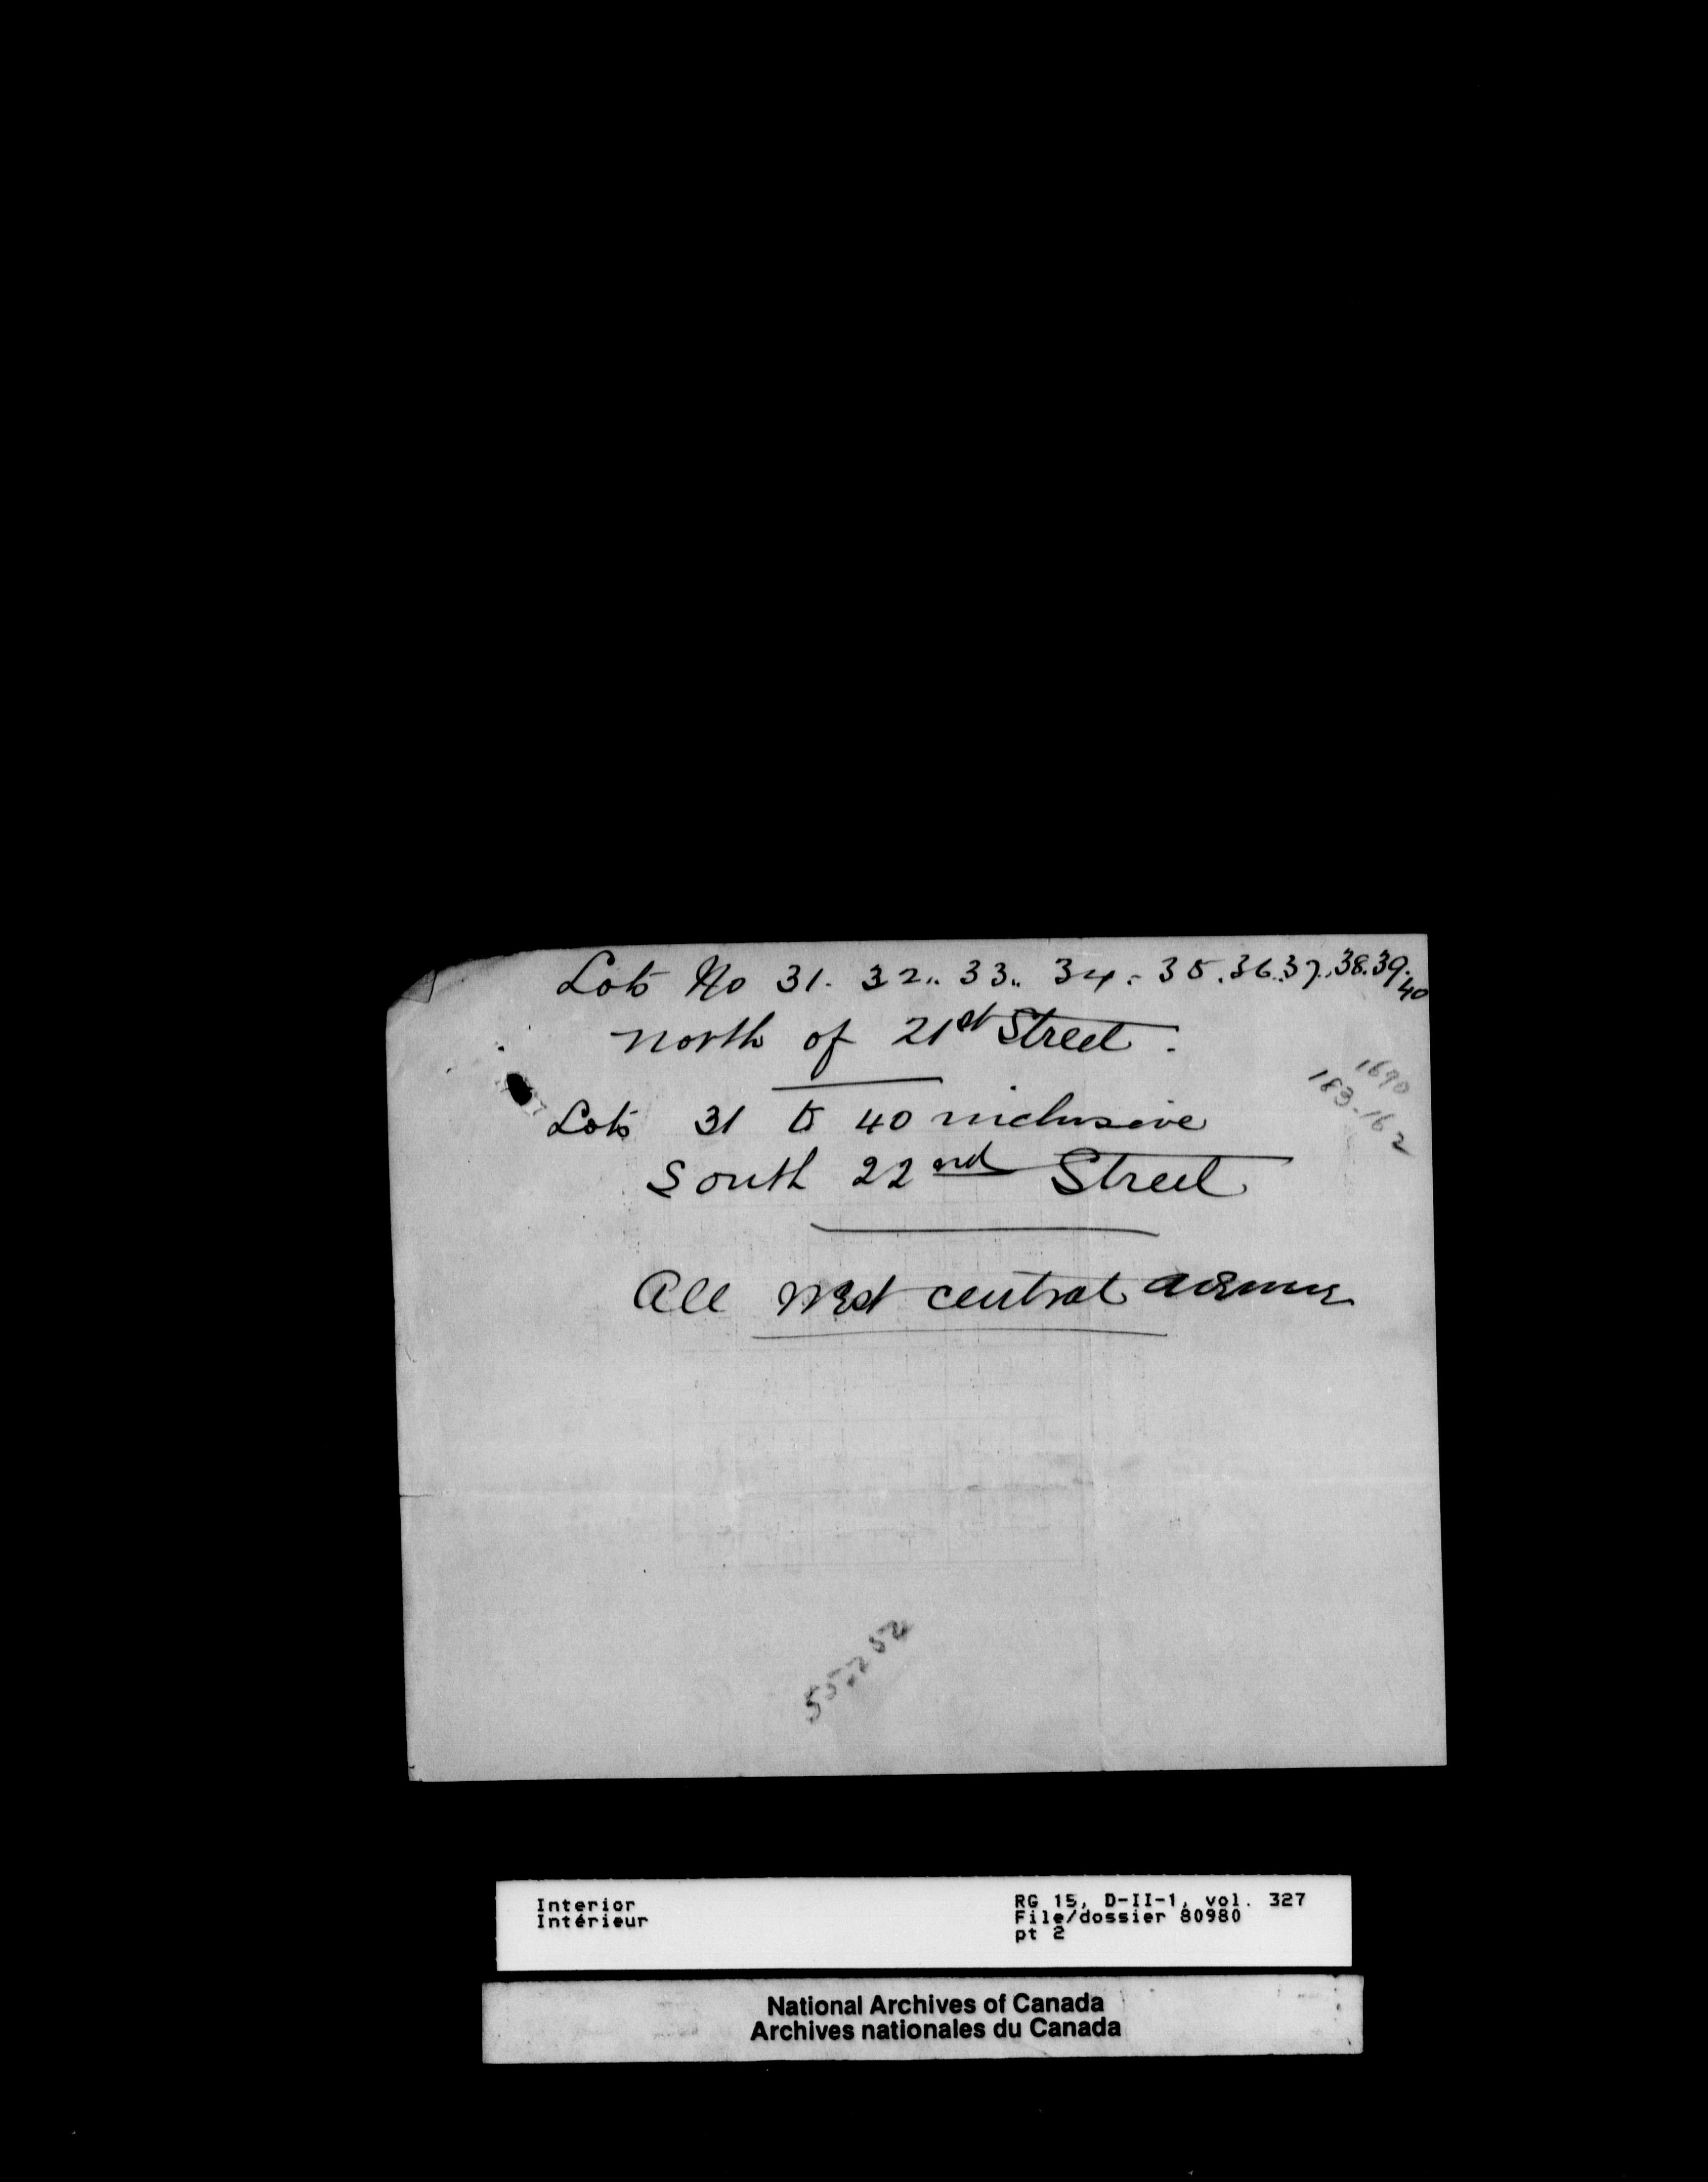 Lots No 31. 32.. 33.. 34. 35. 36. 37. 38. 39. 40
north of 21st Street.
1690
183-162
Lots 31 to 40 inclusive
South 22nd Street
All West central avenue
Interior
Intérieur
RG 15, D-II-1, vol. 327
File/dossier 80980
pt 2
National Archives of Canada
Archives nationales du Canada